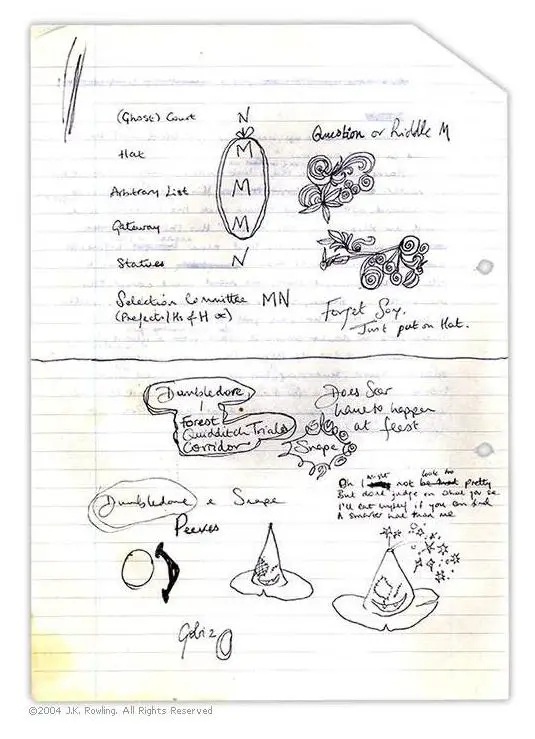 (Ghost) Court N
Hat M
Arbitrary List M
Gateway M
Statues N
Selection Committee MN
(Prefects/Hs of H
Question or Riddle M
Forget Say.
Just put on Hat.
Dumbledore
Forest
Quidditch Trials
Corridor
Snape
Does
have to happen
at feest
Oh I might not look too pretty
But dont judge on what you see
I'll eat myself if you can find
A smarter hat than me
Dumbledore & Snape
Peeves
©2004 J.K. Rowling. All Rights Reserved